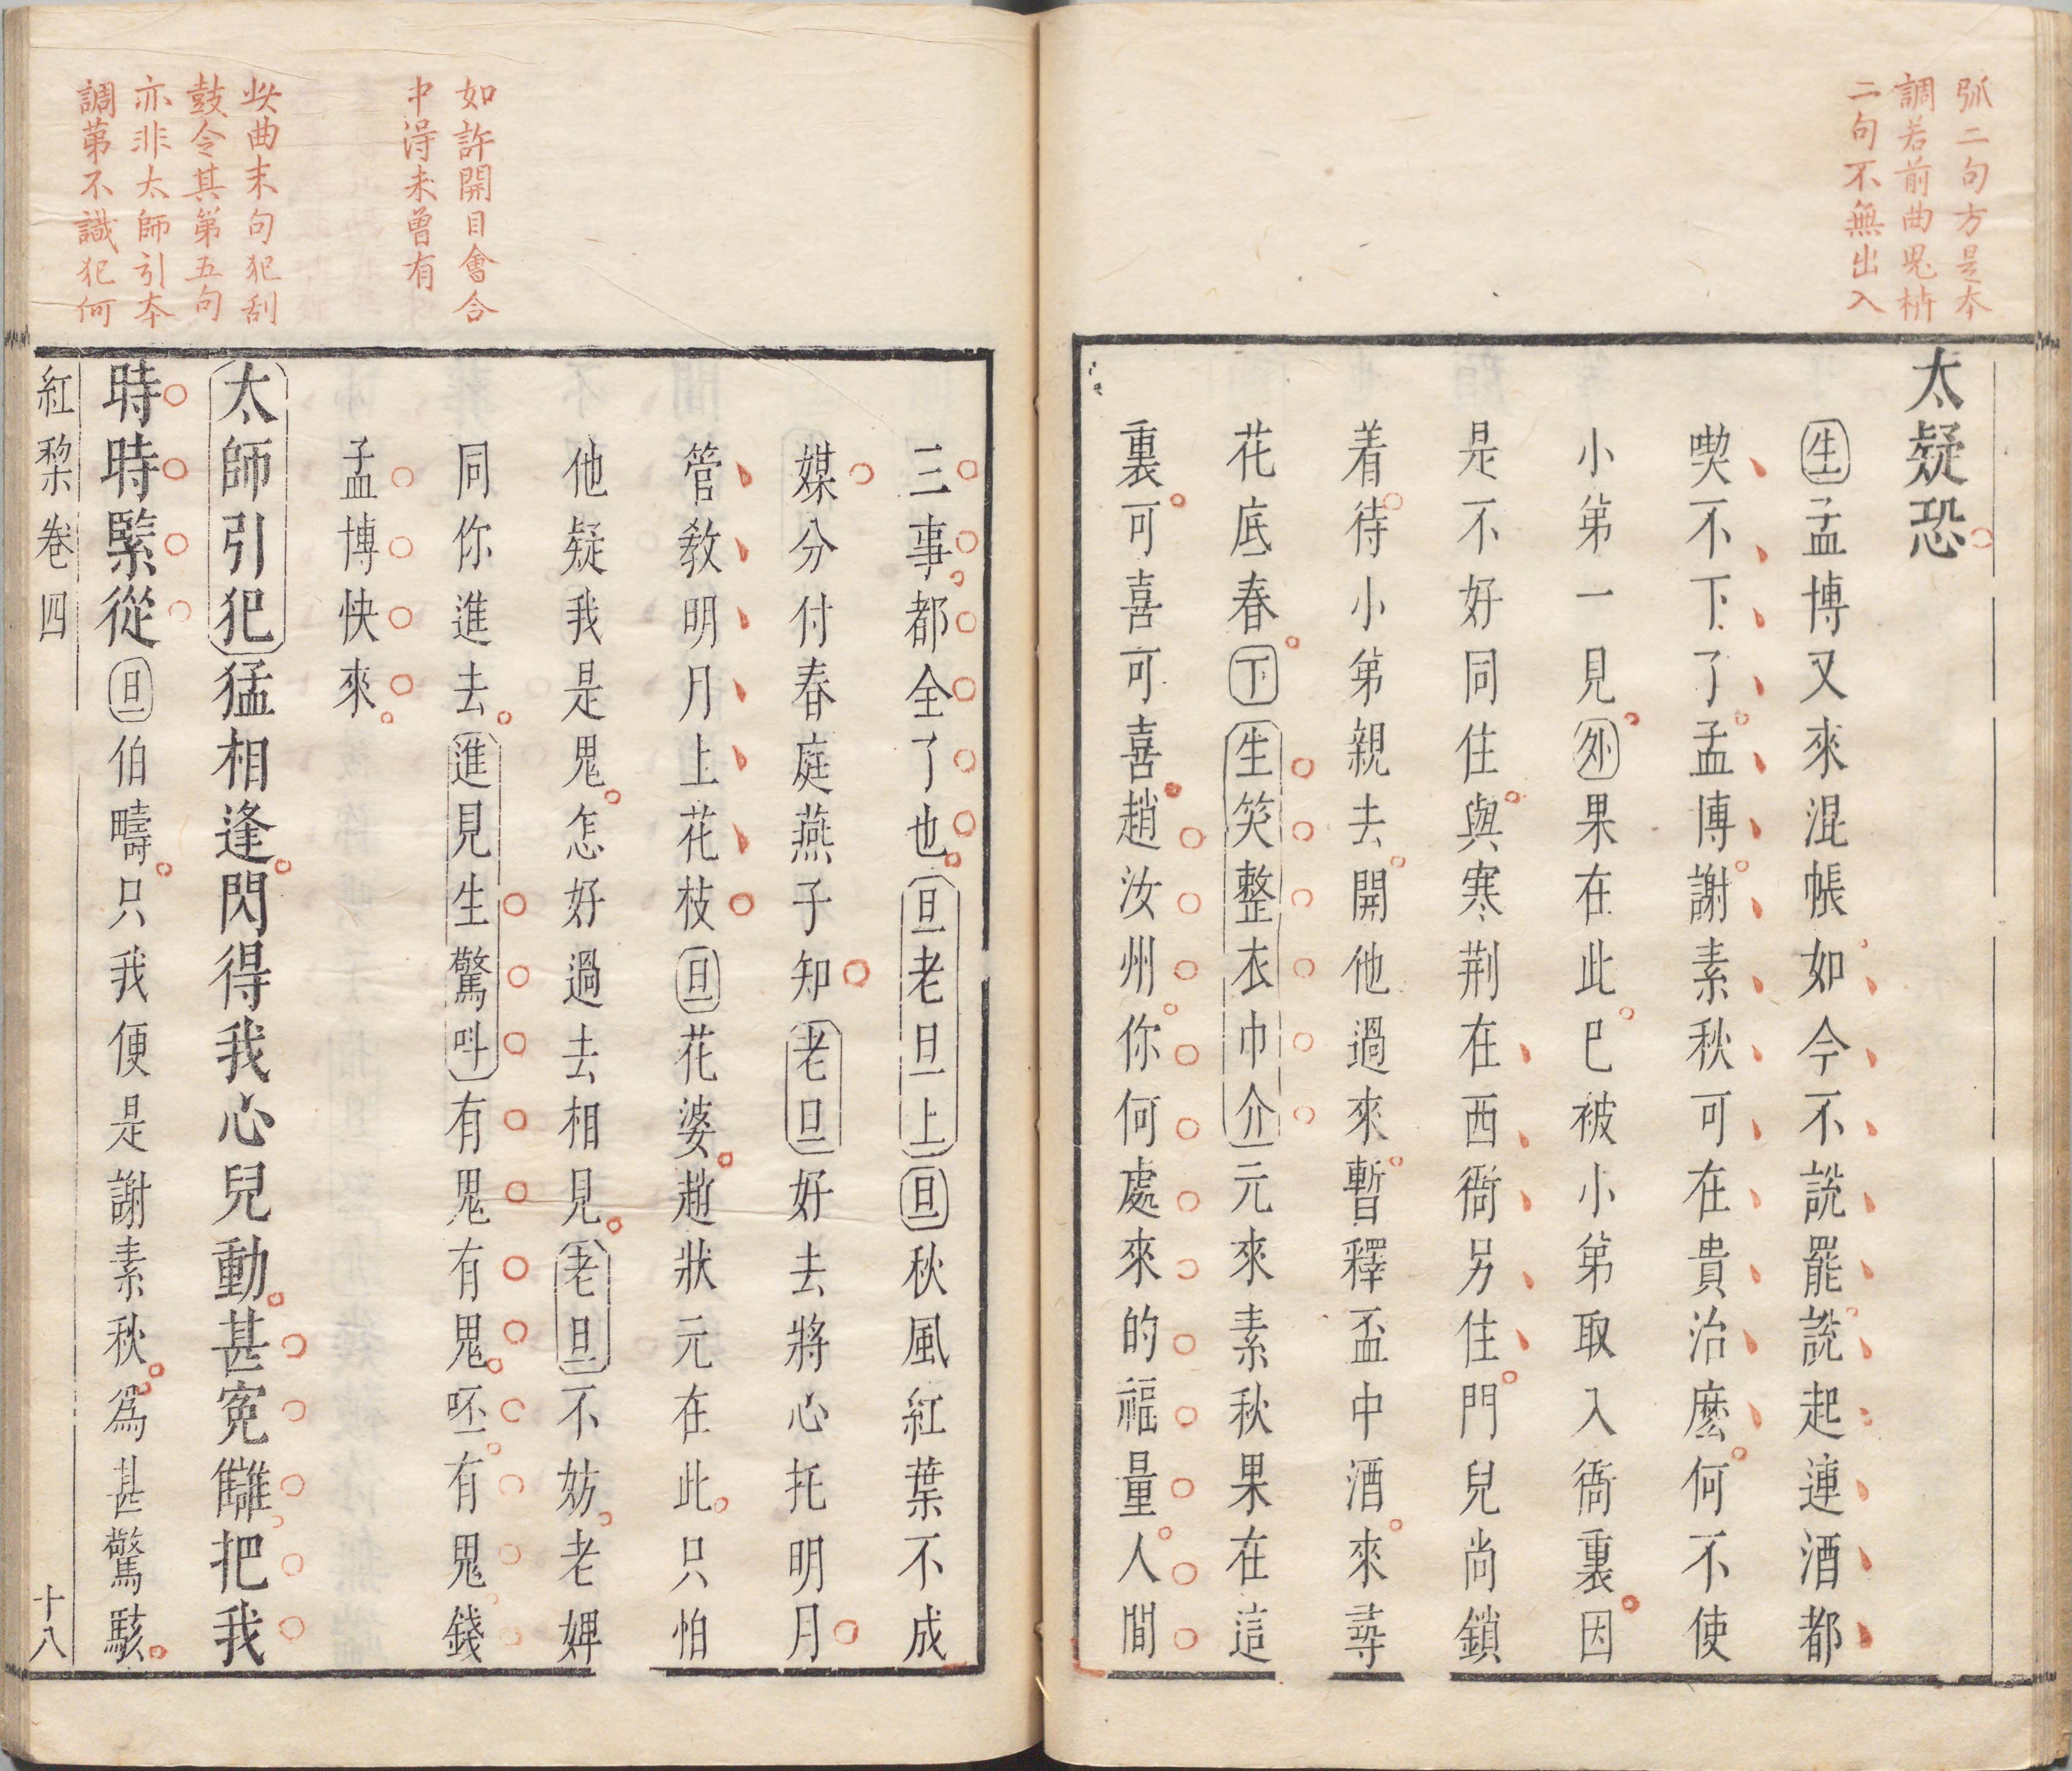 弤二句方是本
調若前曲鬼柝
二句不無出入
太疑恐
生孟博又來混帳如今不說罷說起連酒都
喫不下了孟博謝素秋可在貴治麽何不使
小弟一見外果在此已被小弟取入衙裏因
是不好同住與寒荆在西衙另住門兒尚鎖
着待小弟親去開他過來暫釋盃中酒來尋
花底春下生笑整衣巾介元來素秋果在這
裏可喜可喜趙汝州你何處來的福量人間
如許開目會合
中淂未曾有
此曲末句犯刮
鼓令其第五句
亦非太師引本
調第不識犯何
三事都全了也旦老旦上旦秋風紅葉不成
媒分付春庭燕子知老旦好去將心托明月
管教明月上花枝旦花婆趙狀元在此只怕
他疑我是鬼怎好過去相見老旦不妨老婢
同你進去進見生驚叫有鬼有鬼呸有鬼錢
孟博快來
太師引犯猛相逢閃得我心兒動甚寃讎把我
時時緊從旦伯疇只我便是謝素秋爲甚驚駭
紅棃卷四
十八